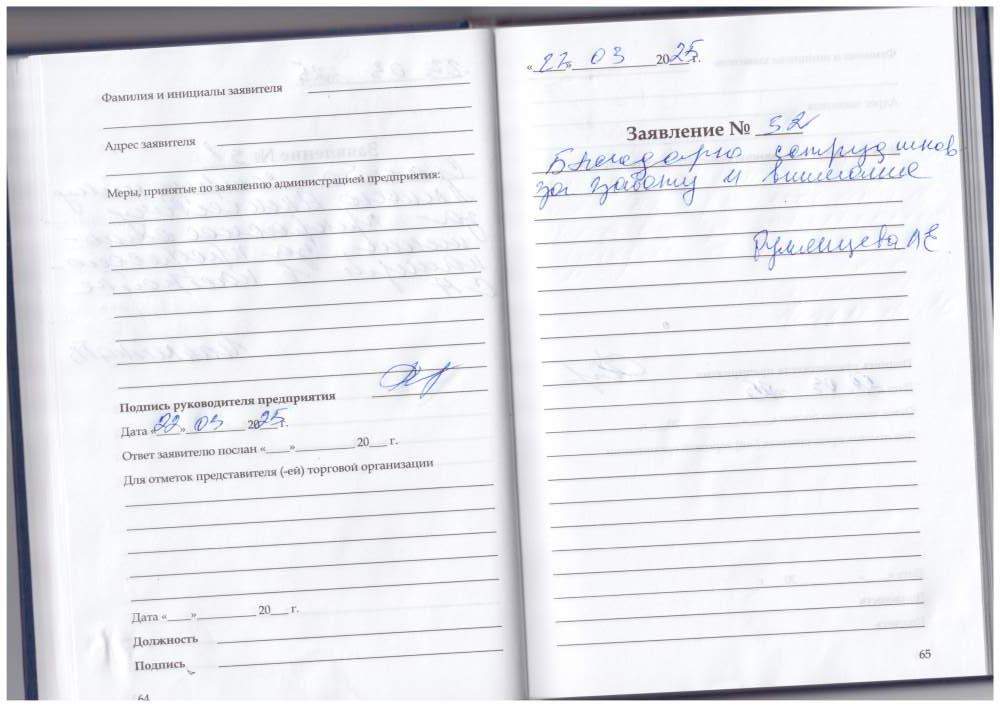 Фамилия и инициалы заявителя
Адрес заявителя
Меры, принятые по заявлению администрацией предприятия:
Подпись руководителя предприятия
Дата «22» 03 2025 г.
Ответ заявителю послан «____»__________ 20___ г.
Для отметок представителя (-ей) торговой организации
Дата «____»__________ 20___ г.
Должность
Подпись
64
«27» 03 2025 г.
Заявление № 32
Благодарю сотрудников
за заботу и внимание
Румянцева АЕ
65